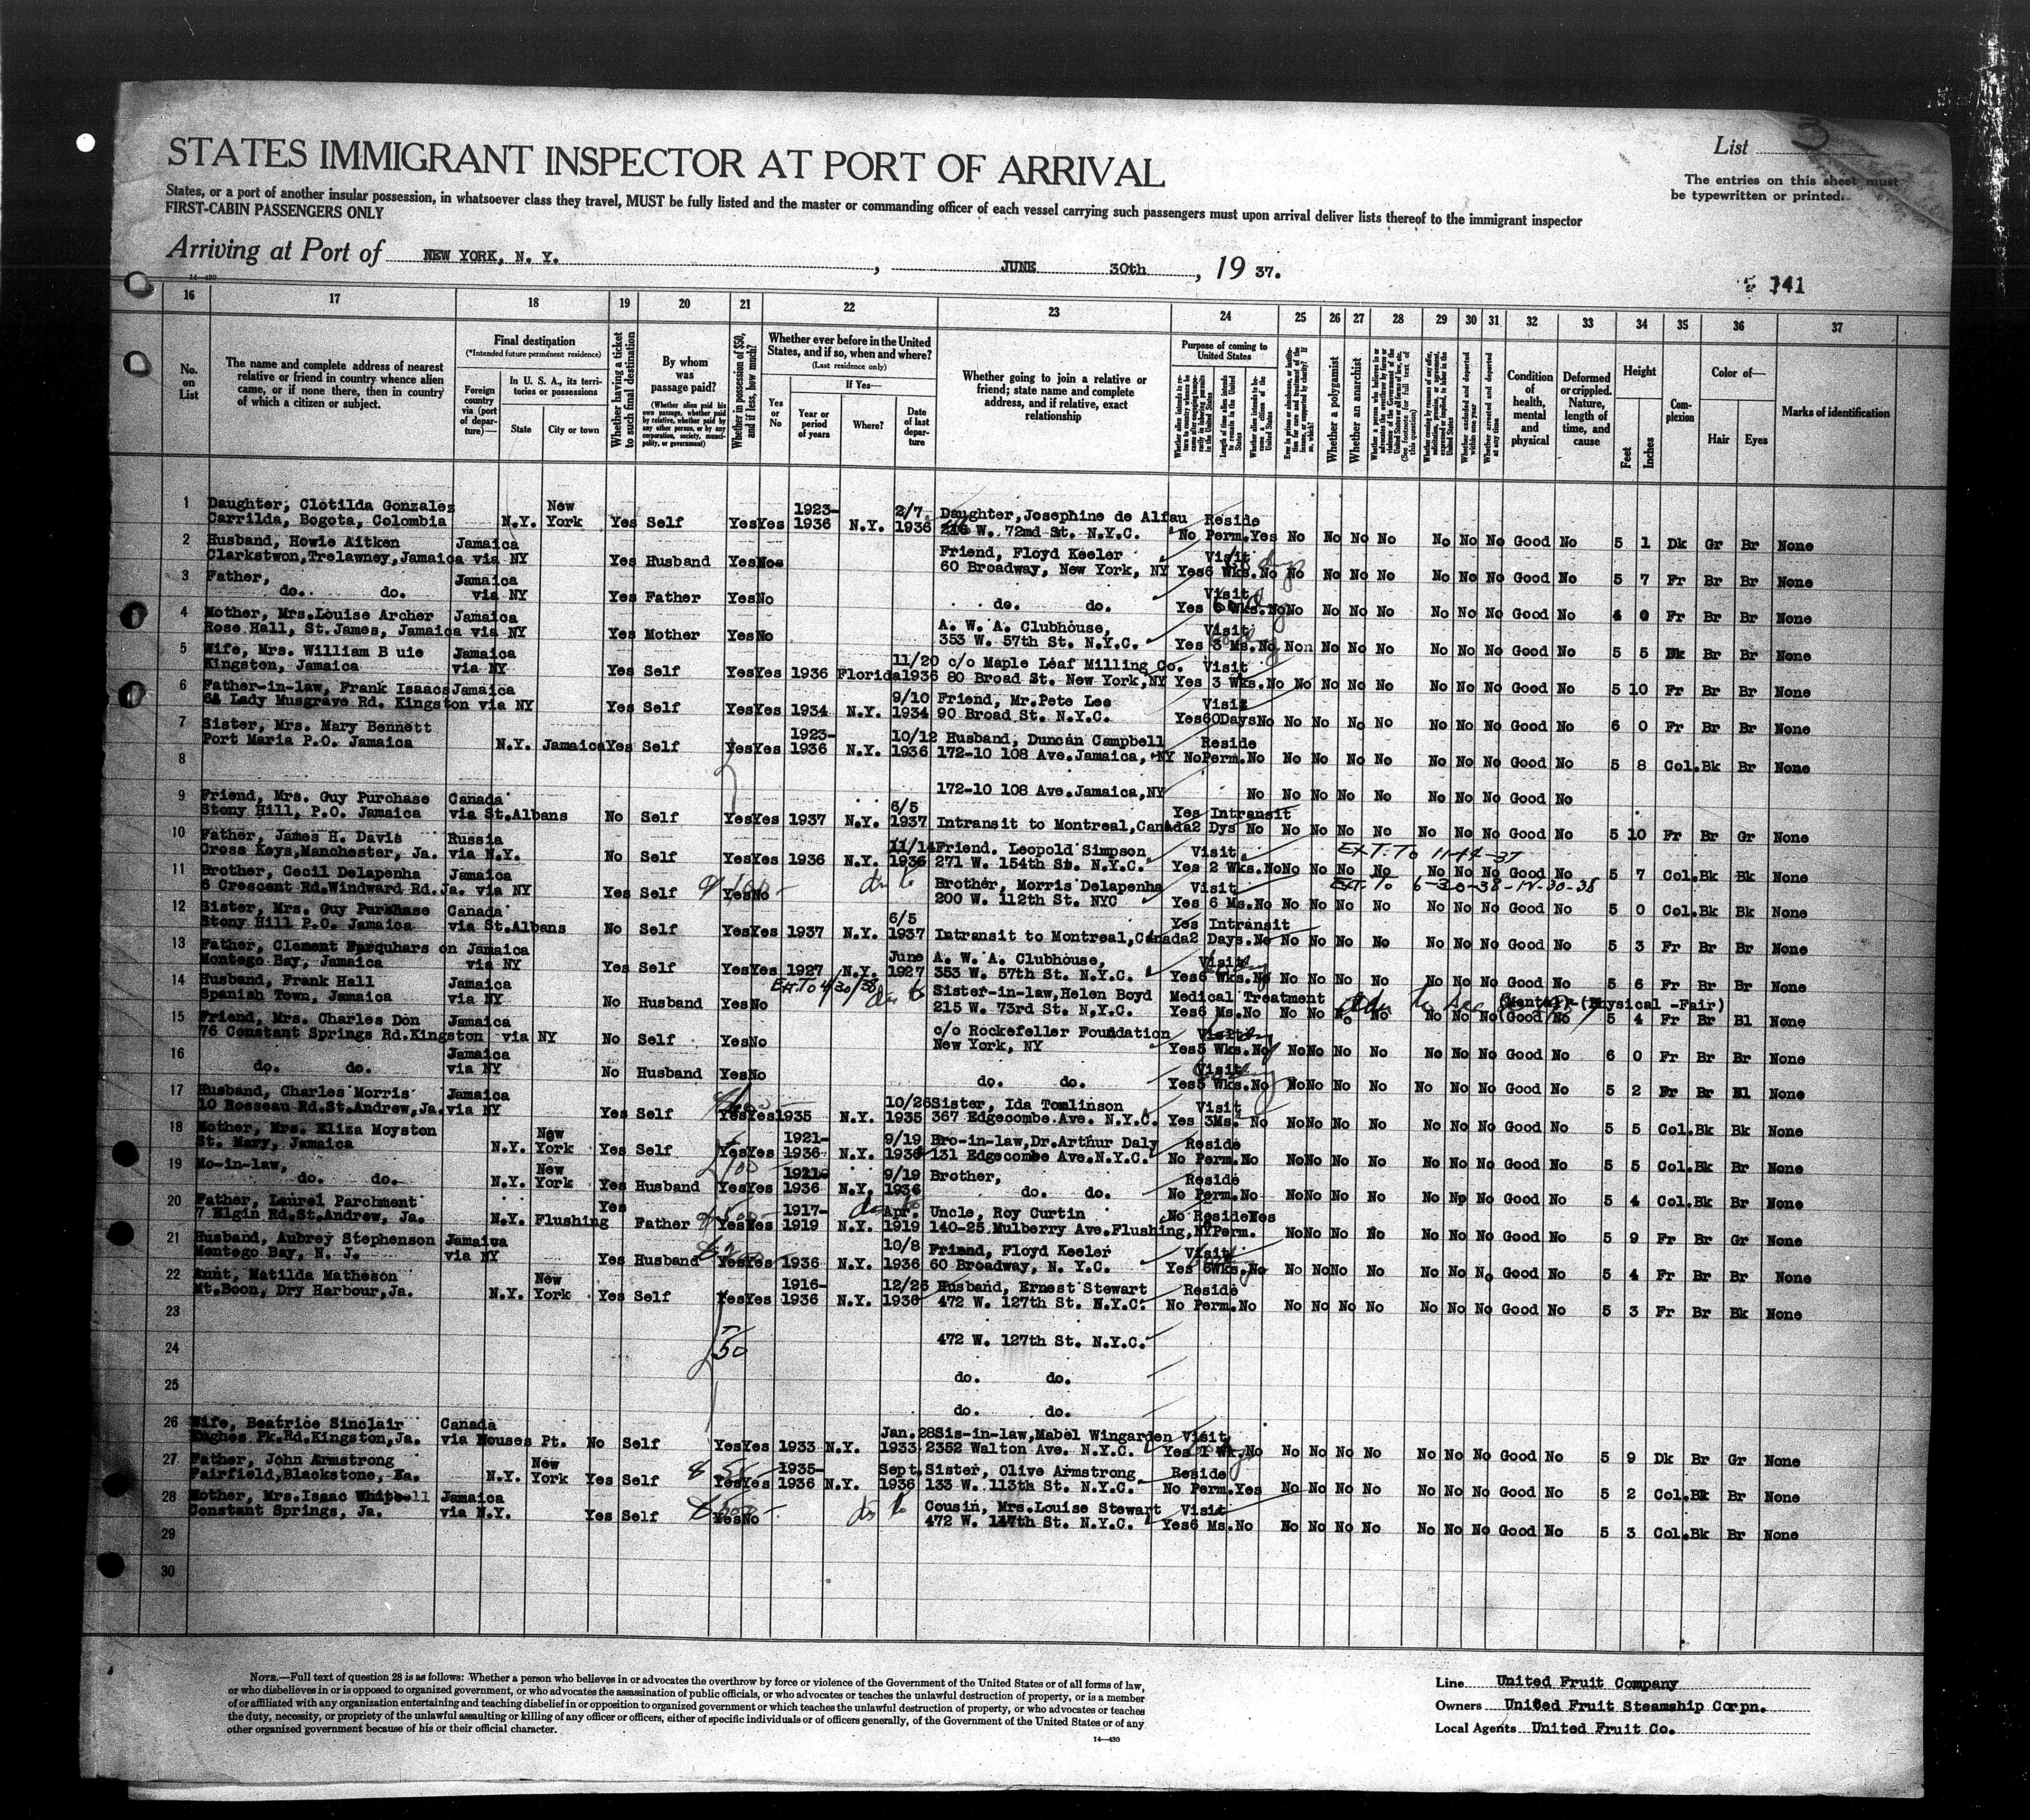 STATES IMMIGRANT INSPECTOR AT PORT OF ARRIVAL
List 3
The entries on this sheet must
be typewritten or printed.
States, or a port of another insular possession, in whatsoever class they travel, MUST be fully listed and the master or commanding officer of each vessel carrying such passengers must upon arrival deliver lists thereof to the immigrant inspector
FIRST-CABIN PASSENGERS ONLY
Arriving at Port of NEW YORK, N. Y., JUNE 30th, 19 37.
14-430
141
16 17 18 19 20 21 22 23 24 25 26 27 28 29 30 31 32 33 34 35 36 37
No. on List
The name and complete address of nearest relative or friend in country whence alien came, or if none there, then in country of which a citizen or subject.
Final destination
(*Intended future permanent residence)
Foreign country via (port of departure)—
In U. S. A., its territories or possessions
State
City or town
Whether having a ticket to such final destination
By whom was passage paid?
(Whether alien paid his own passage, whether paid by relative, whether paid by any other person, or by any corporation, society, municipality, or government)
Whether in possession of $50, and if less, how much?
Whether ever before in the United States, and if so, when and where?
(Last residence only)
If Yes—
Yes or No
Year or period of years
Where?
Date of last departure
Whether going to join a relative or friend; state name and complete address, and if relative, exact relationship
Purpose of coming to United States
Whether a polygamist
Whether an anarchist
Condition of health, mental and physical
Deformed or crippled. Nature, length of time, and cause
Height
Feet
Inches
Complexion
Color of—
Hair
Eyes
Marks of identification
1 Daughter, Clotilda Gonzalez New 1923- 2/7 Daughter, Josephine de Alfau Reside
Carrilda, Bogota, Colombia N.Y. York Yes Self Yes Yes 1936 N.Y. 1936 216 W. 72md St. N.Y.C. No Perm. Yes No No No No No No No Good No 5 1 Dk Gr Br None
2 Husband, Howie Aitken Jamaica Friend, Floyd Keeler Visit
Clarkstwon, Trelawney, Jamaica via NY Yes Husband Yes No 60 Broadway, New York, NY Yes 6 Wks. No No No No No No No No Good No 5 7 Fr Br Br None
3 Father, Jamaica Visit
do. do. via NY Yes Father Yes No do. do. Yes 6 Wks. No No No No No No No No Good No 4 0 Fr Br Br None
4 Mother, Mrs. Louise Archer Jamaica A. W. A. Clubhouse, Visit
Rose Hall, St. James, Jamaica via NY Yes Mother Yes No 353 W. 57th St. N.Y.C. Yes 3 Ms. No Non No No No No No No Good No 5 5 Dk Br Br None
5 Wife, Mrs. William B uie Jamaica 11/20 c/o Maple Leaf Milling Co. Visit
Kingston, Jamaica via NY Yes Self Yes Yes 1936 Florida 1936 80 Broad St. New York, NY Yes 3 Wks. No No No No No No No No Good No 5 10 Fr Br Br None
6 Father-in-law, Frank Isaacs Jamaica 9/10 Friend, Mr. Pete Lee Visit
6A Lady Musgrave Rd. Kingston via NY Yes Self Yes Yes 1934 N.Y. 1934 90 Broad St. N.Y.C. Yes 60 Days No No No No No No No No Good No 6 0 Fr Br Br None
7 Sister, Mrs. Mary Bennett 1923- 10/12 Husband, Duncan Campbell Reside
Port Maria P.O. Jamaica N.Y. Jamaica Yes Self Yes Yes 1936 N.Y. 1936 172-10 108 Ave. Jamaica, NY No Perm. No No No No No No No No Good No 5 8 Col. Bk Br None
8 172-10 108 Ave. Jamaica, NY No No No No No No No No Good No
9 Friend, Mrs. Guy Purchase Canada 6/5 Yes Intransit
Stony Hill, P.O. Jamaica via St. Albans No Self Yes Yes 1937 N.Y. 1937 Intransit to Montreal, Canada 2 Dys No No No No No No No No Good No 5 10 Fr Br Gr None
10 Father, James H. Davis Russia 11/14 Friend. Leopold Simpson Visit EXT. TO 11-14-37
Cross Keys, Manchester, Ja. via N.Y. No Self Yes Yes 1936 N.Y. 1936 271 W. 154th St. N.Y.C. Yes 2 Wks. No No No No No No No No Good No 5 7 Col. Bk Bk None
11 Brother, Cecil Delapenha Jamaica Brother, Morris Delapenha Visit Ext. To 6-30-38-12-30-38
6 Crescent Rd. Windward Rd. Ja. via NY Yes Self Yes No 200 W. 112th St. NYC Yes 6 Ms. No No No No No No No No Good No 5 0 Col. Bk Bk None
12 Sister, Mrs. Guy Purchase Canada 6/5 Yes Intransit
Stony Hill P.O. Jamaica via St. Albans No Self Yes Yes 1937 N.Y. 1937 Intransit to Montreal, Canada 2 Days. No No No No No No No No Good No 5 3 Fr Br Br None
13 Father, Clement Farquhars on Jamaica June A. W. A. Clubhouse, Visit
Montego Bay, Jamaica via NY Yes Self Yes Yes 1927 N.Y. 1927 353 W. 57th St. N.Y.C. Yes 6 Wks. No No No No No No No No Good No 5 6 Fr Br Br None
14 Husband, Frank Hall Jamaica Ext. To 4/30/38 Sister-in-law, Helen Boyd Medical Treatment (Mental)-(Physical -Fair)
Spanish Town, Jamaica via NY No Husband Yes No 215 W. 73rd St. N.Y.C. Yes 6 Ms. No No No No No No No No (Good No 5 4 Fr Br Bl None
15 Friend, Mrs. Charles Don Jamaica c/o Rockefeller Foundation Visit
76 Constant Springs Rd. Kingston via NY No Self Yes No New York, NY Yes 5 Wks. No No No No No No No No Good No 6 0 Fr Br Br None
16 Jamaica Visit
do. do. via NY No Husband Yes No do. do. Yes 5 Wks. No No No No No No No No Good No 5 2 Fr Br Bl None
17 Husband, Charles Morris Jamaica 10/26 Sister, Ida Tomlinson Visit
10 Rosseau Rd. St. Andrew, Ja. via NY Yes Self Yes Yes 1935 N.Y. 1935 367 Edgecombe Ave. N.Y.C. Yes 3Ms. No No No No No No No No Good No 5 5 Col. Bk Bk None
18 Mother, Mrs. Eliza Moyston New 1921- 9/19 Bro-in-law, Dr. Arthur Daly Reside
St. Mary, Jamaica N.Y. York Yes Self Yes Yes 1936 N.Y. 1936 131 Edgecombe Ave. N.Y.C. No Perm. No No No No No No No No Good No 5 5 Col. Bk Br None
19 Mo-in-law, New 1921- 9/19 Brother, Reside
do. do. N.Y. York Yes Husband Yes Yes 1936 N.Y. 1936 do. do. No Perm. No No No No No No No No Good No 5 4 Col. Bk Br None
20 Father, Laurel Parchment Yes 1917- Apr. Uncle, Roy Curtin No Reside Yes
7 Elgin Rd. St. Andrew, Ja. N.Y. Flushing Father Yes Yes 1919 N.Y. 1919 140-25 Mulberry Ave. Flushing, NY Perm. No No No No No No No Good No 5 9 Fr Br Gr None
21 Husband, Aubrey Stephenson Jamaica 10/8 Friend, Floyd Keeler Visit
Montego Bay, N. J. via NY Yes Husband Yes Yes 1936 N.Y. 1936 60 Broadway, N. Y.C. Yes 6Wks. No No No No No No No No Good No 5 4 Fr Br Br None
22 Aunt, Matilda Matheson New 1916- 12/26 Husband, Ernest Stewart Reside
Mt. Boon, Dry Harbour, Ja. N.Y. York Yes Self Yes Yes 1936 N.Y. 1936 472 W. 127th St. N.Y.C. No Perm. No No No No No No No No Good No 5 3 Fr Br Bk None
23 472 W. 127th St. N.Y.C.
24 50 do. do.
25 do. do.
26 Wife, Beatrice Sinclair Canada Jan. 28 Sis-in-law, Mabel Wingarden Visit
Hughes Pk. Rd. Kingston, Ja. via Rouses Pt. No Self Yes Yes 1933 N.Y. 1933 2352 Walton Ave. N.Y.C. Yes 1 Wk. No No No No No No No No Good No 5 9 Dk Br Gr None
27 Father, John Armstrong New 1935- Sept. Sister, Olive Armstrong Reside
Fairfield, Blackstone, Ja. N.Y. York Yes Self Yes Yes 1936 N.Y. 1936 133 W. 113th St. N.Y.C. No Perm. Yes No No No No No No No Good No 5 2 Col. Bk Br None
28 Mother, Mrs. Isaac Jamaica Cousin, Mrs. Louise Stewart Visit
Constant Springs, Ja. via N.Y. Yes Self Yes No 472 W. 147th St. N.Y.C. Yes 6 Ms. No No No No No No No No Good No 5 3 Col. Bk Br None
29
30
NOTE.—Full text of question 28 is as follows: Whether a person who believes in or advocates the overthrow by force or violence of the Government of the United States or of all forms of law,
or who disbelieves in or is opposed to organized government, or who advocates the assassination of public officials, or who advocates or teaches the unlawful destruction of property, or is a member
of or affiliated with any organization entertaining and teaching disbelief in or opposition to organized government or which teaches the unlawful destruction of property, or who advocates or teaches
the duty, necessity, or propriety of the unlawful assaulting or killing of any officer or officers, either of specific individuals or of officers generally, of the Government of the United States or of any
other organized government because of his or their official character.
14-430
Line United Fruit Company
Owners United Fruit Steamship Corpn.
Local Agents United Fruit Co.